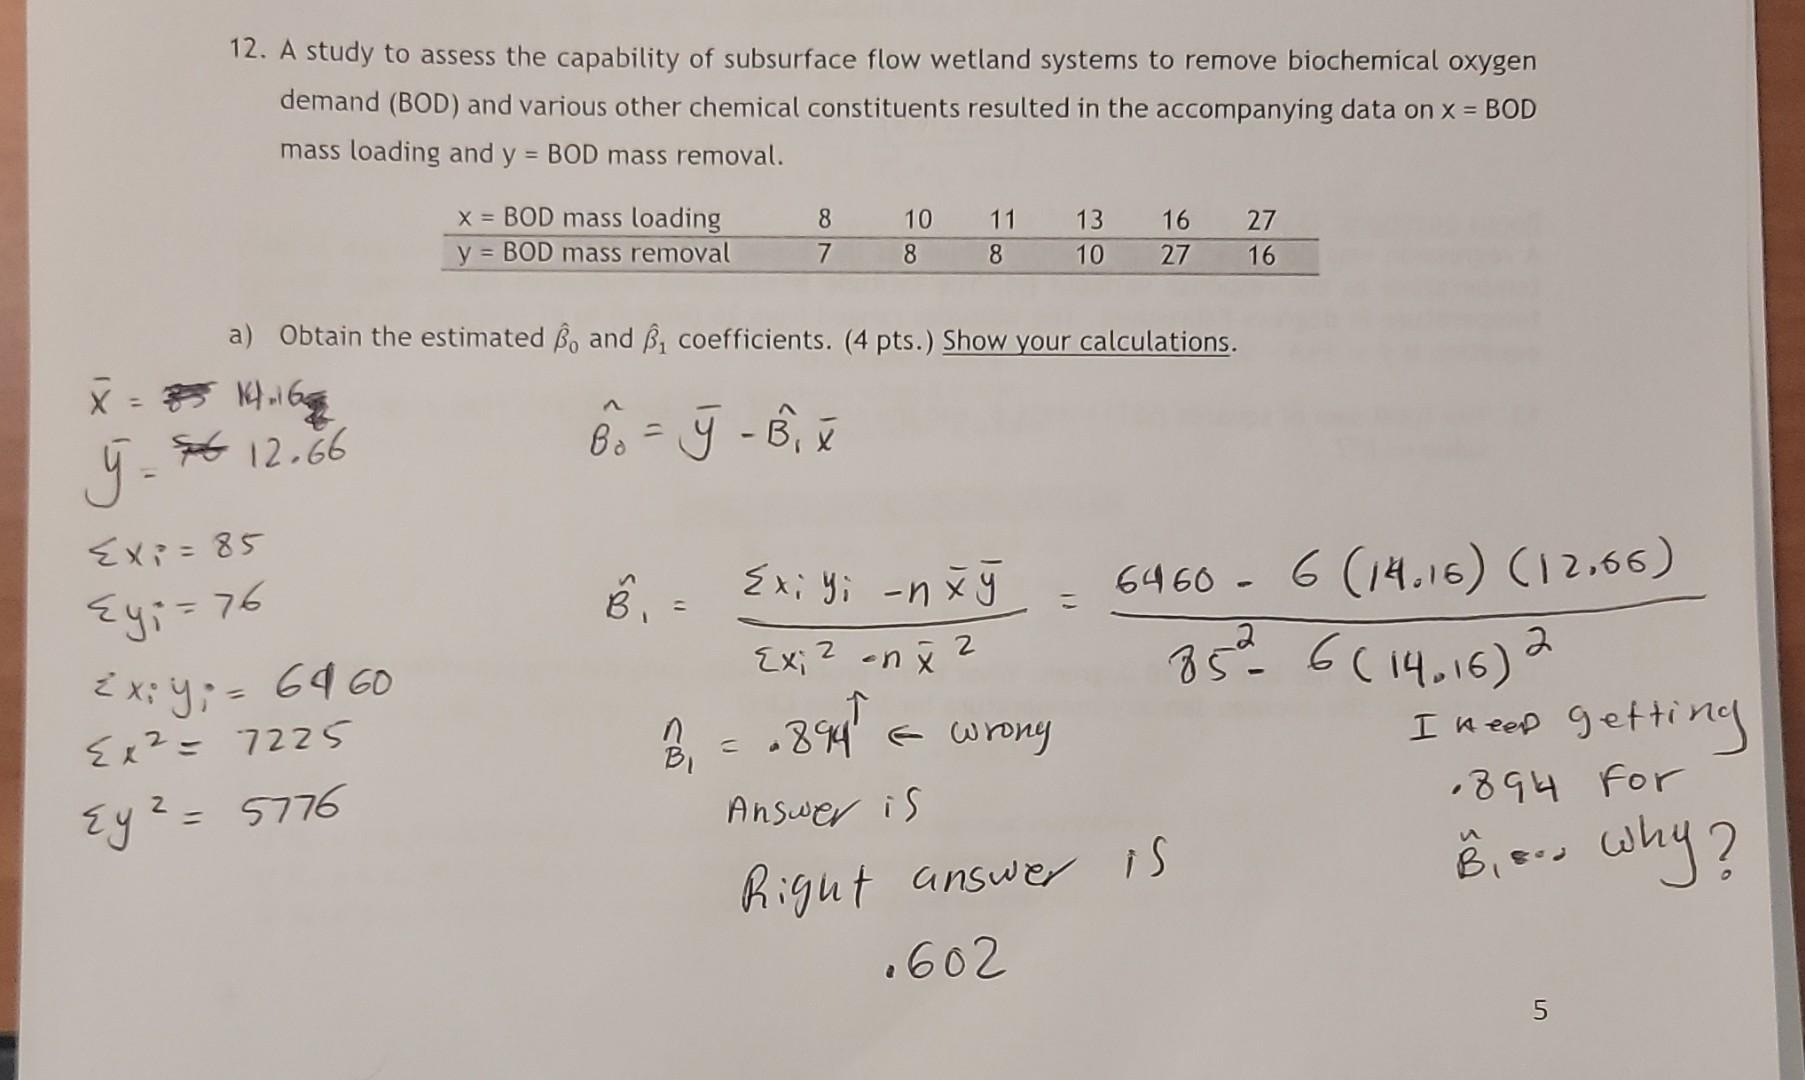 12. A study to assess the capability of subsurface flow wetland systems to remove biochemical oxygen
demand (BOD) and various other chemical constituents resulted in the accompanying data on x = BOD
mass loading and y = BOD mass removal.
x = BOD mass loading 8 10 11 13 16 27
y = BOD mass removal 7 8 8 10 27 16
a) Obtain the estimated β̂₀ and β̂₁ coefficients. (4 pts.) Show your calculations.
x̄ = 14.16
ȳ = 12.66
B̂₀ = ȳ - B̂₁ x̄
Σxᵢ = 85
Σyᵢ = 76
Σxᵢyᵢ = 6460
Σx² = 7225
Σy² = 5776
B̂₁ = (Σxᵢyᵢ - n x̄ ȳ) / (Σxᵢ² - n x̄²) = (6460 - 6(14.16)(12.66)) / (85² - 6(14.16)²)
B̂₁ = .894 ← wrong
↑
Answer is
Right answer is
.602
I keep getting
.894 for
B̂₁ ... why?
5